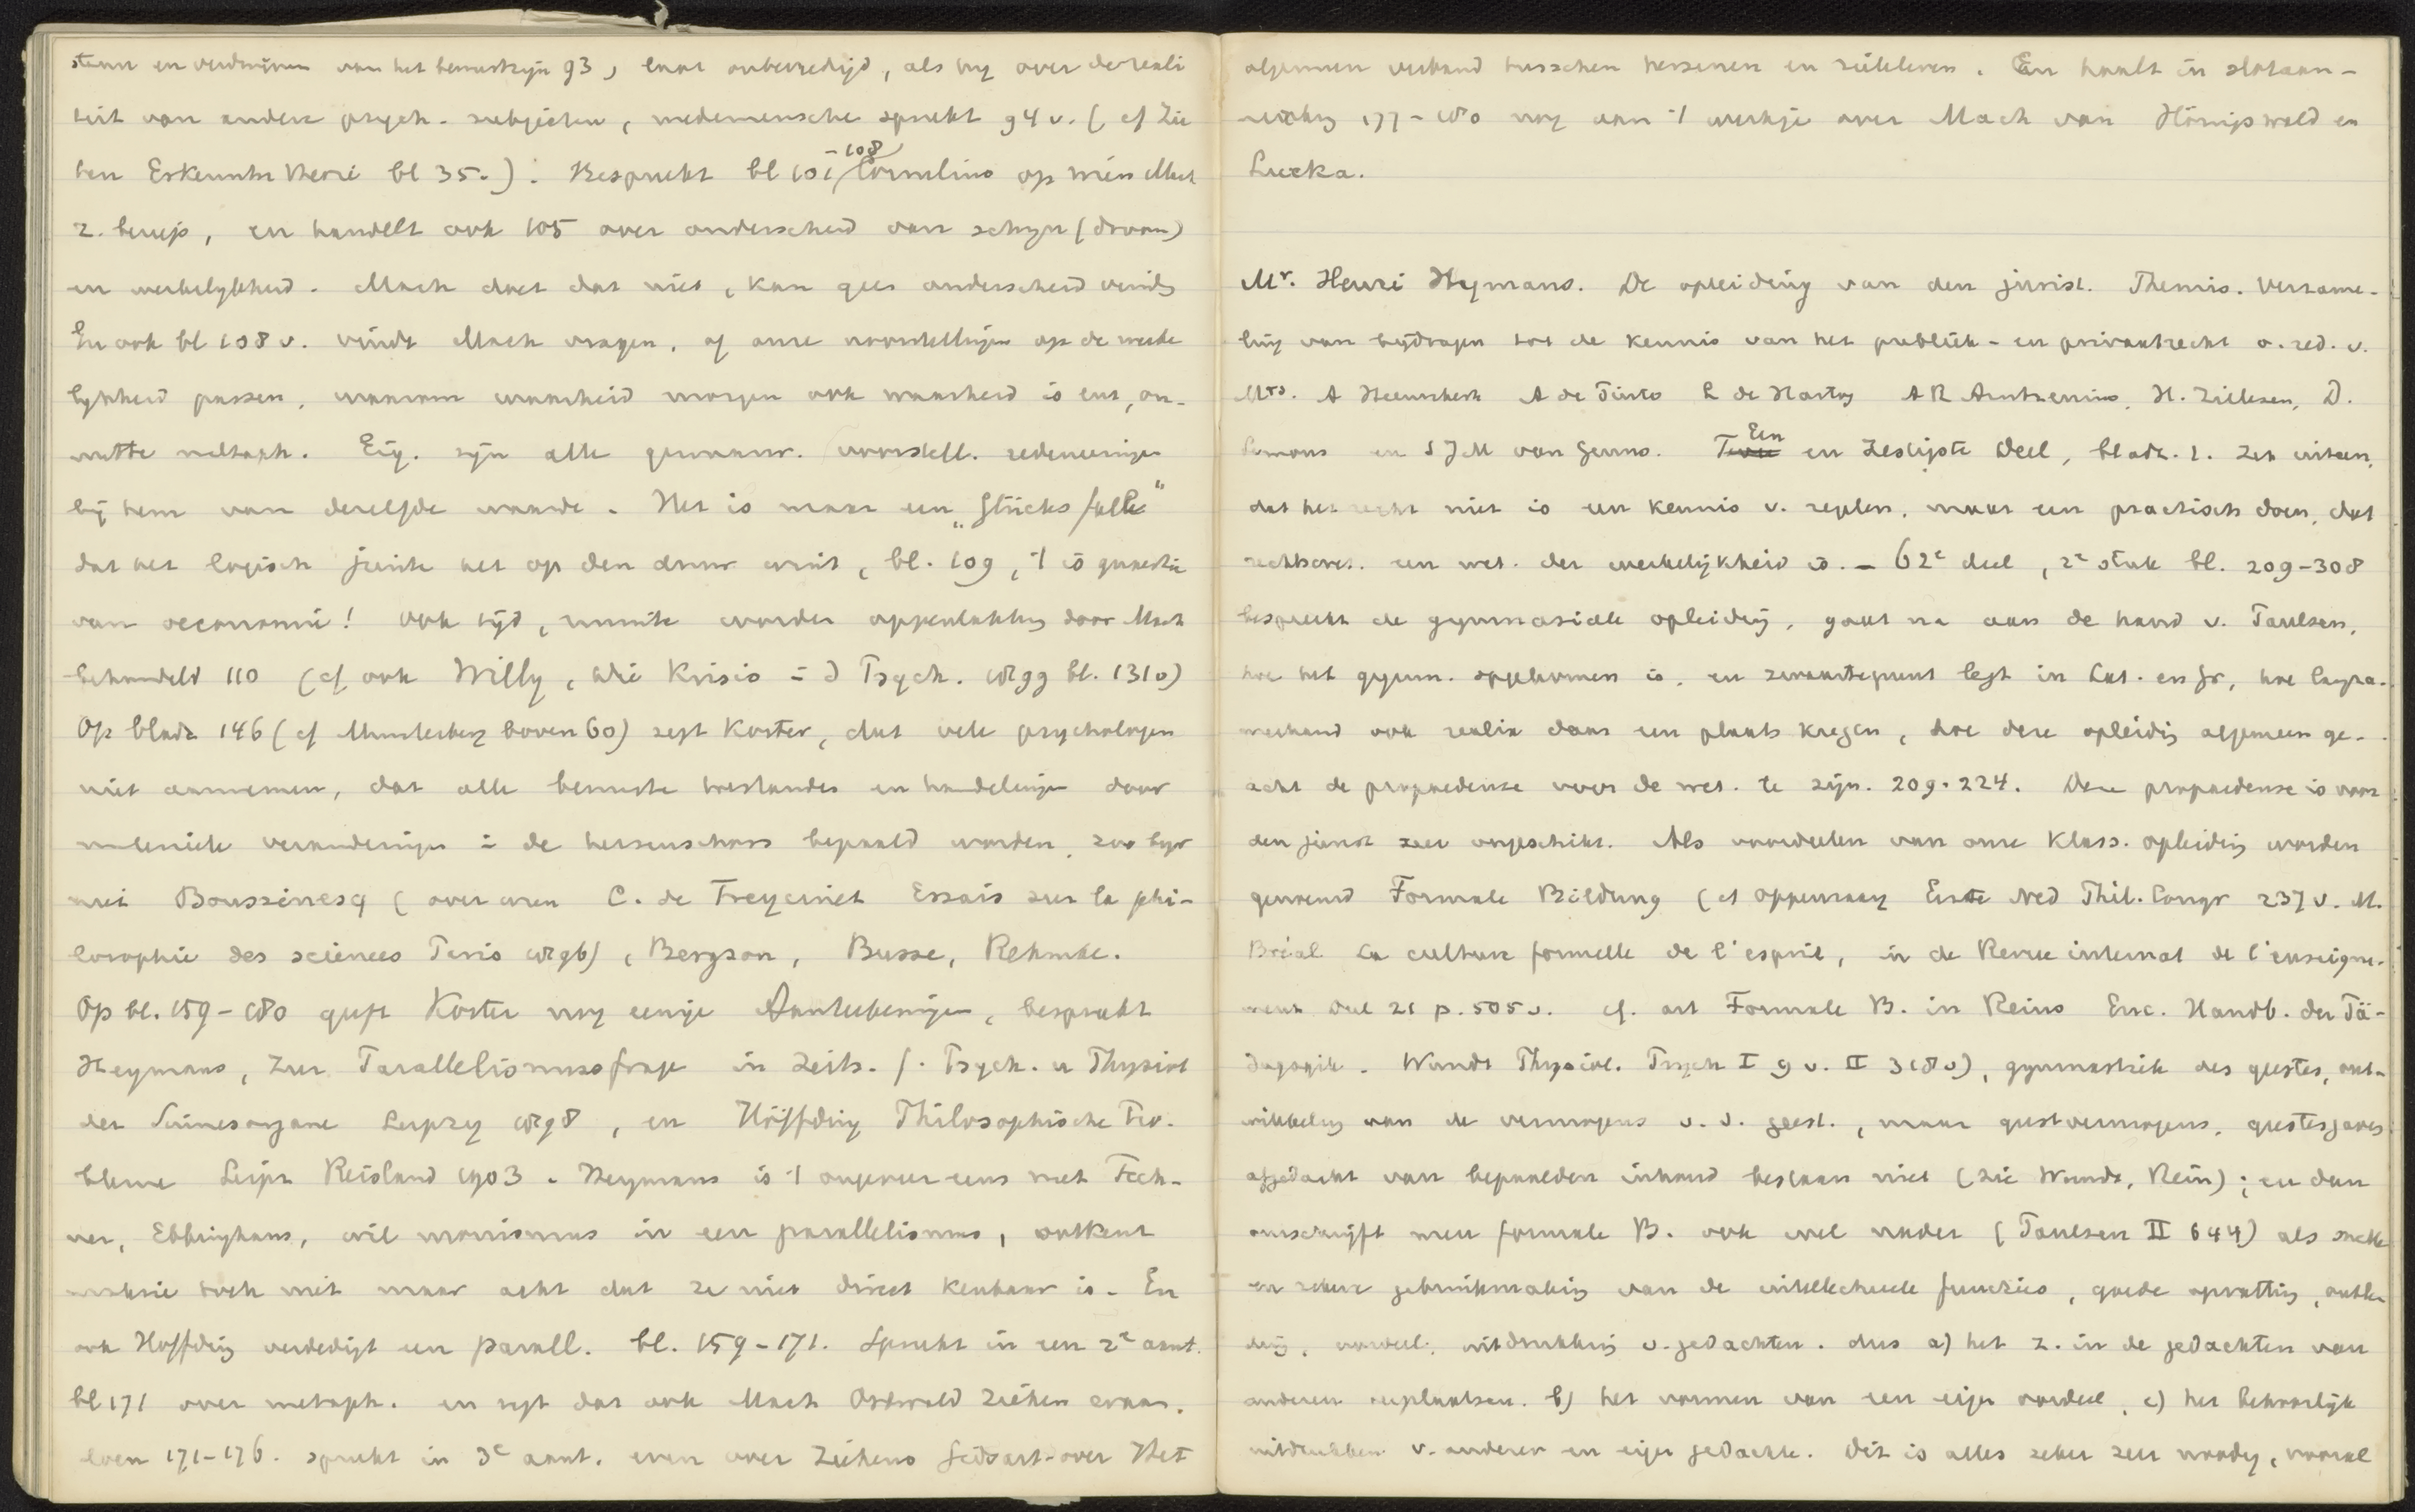 staan en verdwijnen van het bewustzijn 93, laat onbevredigd, als hij over de reali
teit van andere psych. subjecten, medemensche spreekt 94 v. (cf Zie
hen Erkenntn theorie bl 35.). Bespreekt bl 101-108 Cornelius op wien Mach
z. beroept, en handelt ook 105 over onderscheid van schijn (droom)
en werkelijkheid. Mach doet dat niet, kan geen onderscheid vinden
En ook bl 108 v. vindt Mach vragen, of onze voorstellingen op de werke
lijkheid passen, waarom waarheid morgen ook waarheid is enz, on-
nutte metaph. Eig. zijn alle gewaarw. voorstell. redeneeringen
bij hem van dezelfde waarde. Het is maar een „Glücksfall"
dat het logisch juiste het op den duur wint, bl. 109, 't is quaestie
van oeconomie! Ook tijd, ruimte worden oppervlakkig door Mach
behandeld 110 (cf ook Willy, Die Krisis in d Psych. 1899 bl. 131 v)
Op bladz 146 (cf Munsterberg boven 60) zegt Koster, dat vele psychologen
niet aannemen, dat alle bewuste toestanden en handelingen door
materieele veranderingen in de hersenschors bepaald worden, zoo bijv
met Boussinesq (over wien C. de Freycinet Essais sur la phi-
losophie des sciences Paris 1896), Bergson, Busse, Rehmke.
Op bl. 159-180 geeft Koster nog eenige Aanteekeningen, bespreekt
Heymans, Zur Parallelismusfrage in Zeits. f. Psych. u Physiol
der Sinnesorgane Leipzig 1898, en Höffding Philosophische Pro-
bleme Leipz Reisland 1903. Heymans is 't ongeveer eens met Fech-
ner, Ebbinghaus, wil monismus in een parallelismus, ontkent
materie toch niet maar acht dat ze niet direct kenbaar is. En
ook Höffding verdedigt een parall. bl. 159-171. Spreekt in een 2e aant.
bl 171 over metaph. en zegt dat ook Mach Ostwald Ziehen eraan
doen 171-176. spreekt in 3e aant. even over Ziehens Gedaert over Het
algemeen verband tusschen hersenen en zieleleven. En haalt in slotaan-
teekeng 177-180 nog aan 't werkje over Mach van Hönigswald en
Lucka.
Mr. Henri Hijmans. De opleiding van den jurist. Themis. Verzame-
ling van bijdragen tot de kennis van het publiek- en privaatrecht o. red. v.
Mrs. A Heemskerk A de Pinto L de Hartog A R Arntzenius, H. Zillesen, D.
Simons en S J M van Geuns. Een en Zestigste Deel, bladz. 1. Zet uiteen,
dat het recht niet is een kennis v. regelen, maar een practisch doen, dat
rechtswet. een wet. der werkelijkheid is. - 62e deel, 2e stuk bl. 209-308
bespreekt de gymnasiale opleiding, gaat na aan de hand v. Paulsen,
hoe het gymn. opgekomen is, en zwaartepunt legt in Lat. en Gr, hoe langza-
merhand ook realia daar een plaats kregen, hoe deze opleiding algemeen ge-
acht de propaedeuse voor de wet. te zijn. 209-224. Deze propaedeuse is voor
den jurist zeer ongeschikt. Als voordeelen van onze klass. opleiding worden
genoemd Formale Bildung (cf Oppenraay Eerste Ned Phil. Congr 237 v. M.
Bréal La culture formelle de l'esprit, in de Revue internat de l'enseigne-
ment deel 21 p. 505 v. cf. art Formale B. in Reins Enc. Handb. der Pä-
dagogik. Wundt Physiol. Psych I 9 v. II 318 v), gymnastiek des geestes, ont-
wikkeling van de vermogens v. d. geest, maar geestvermogens, geestesgaven
afgedacht van bepaalden inhoud bestaan niet (zie Wundt, Rein); en dan
omschrijft men formale B. ook wel nader (Paulsen II 644) als snelle
en zekere gebruikmaking van de intellectueele functies, goede opvatting, ontle
ding, oordeel, uitdrukking v. gedachten. dus a) het z. in de gedachten van
anderen verplaatsen. b) het vormen van een eigen oordeel, c) het behoorlijk
uitdrukken v. anderer en eigen gedachte. Dit is alles zeker zeer noodig, vooral